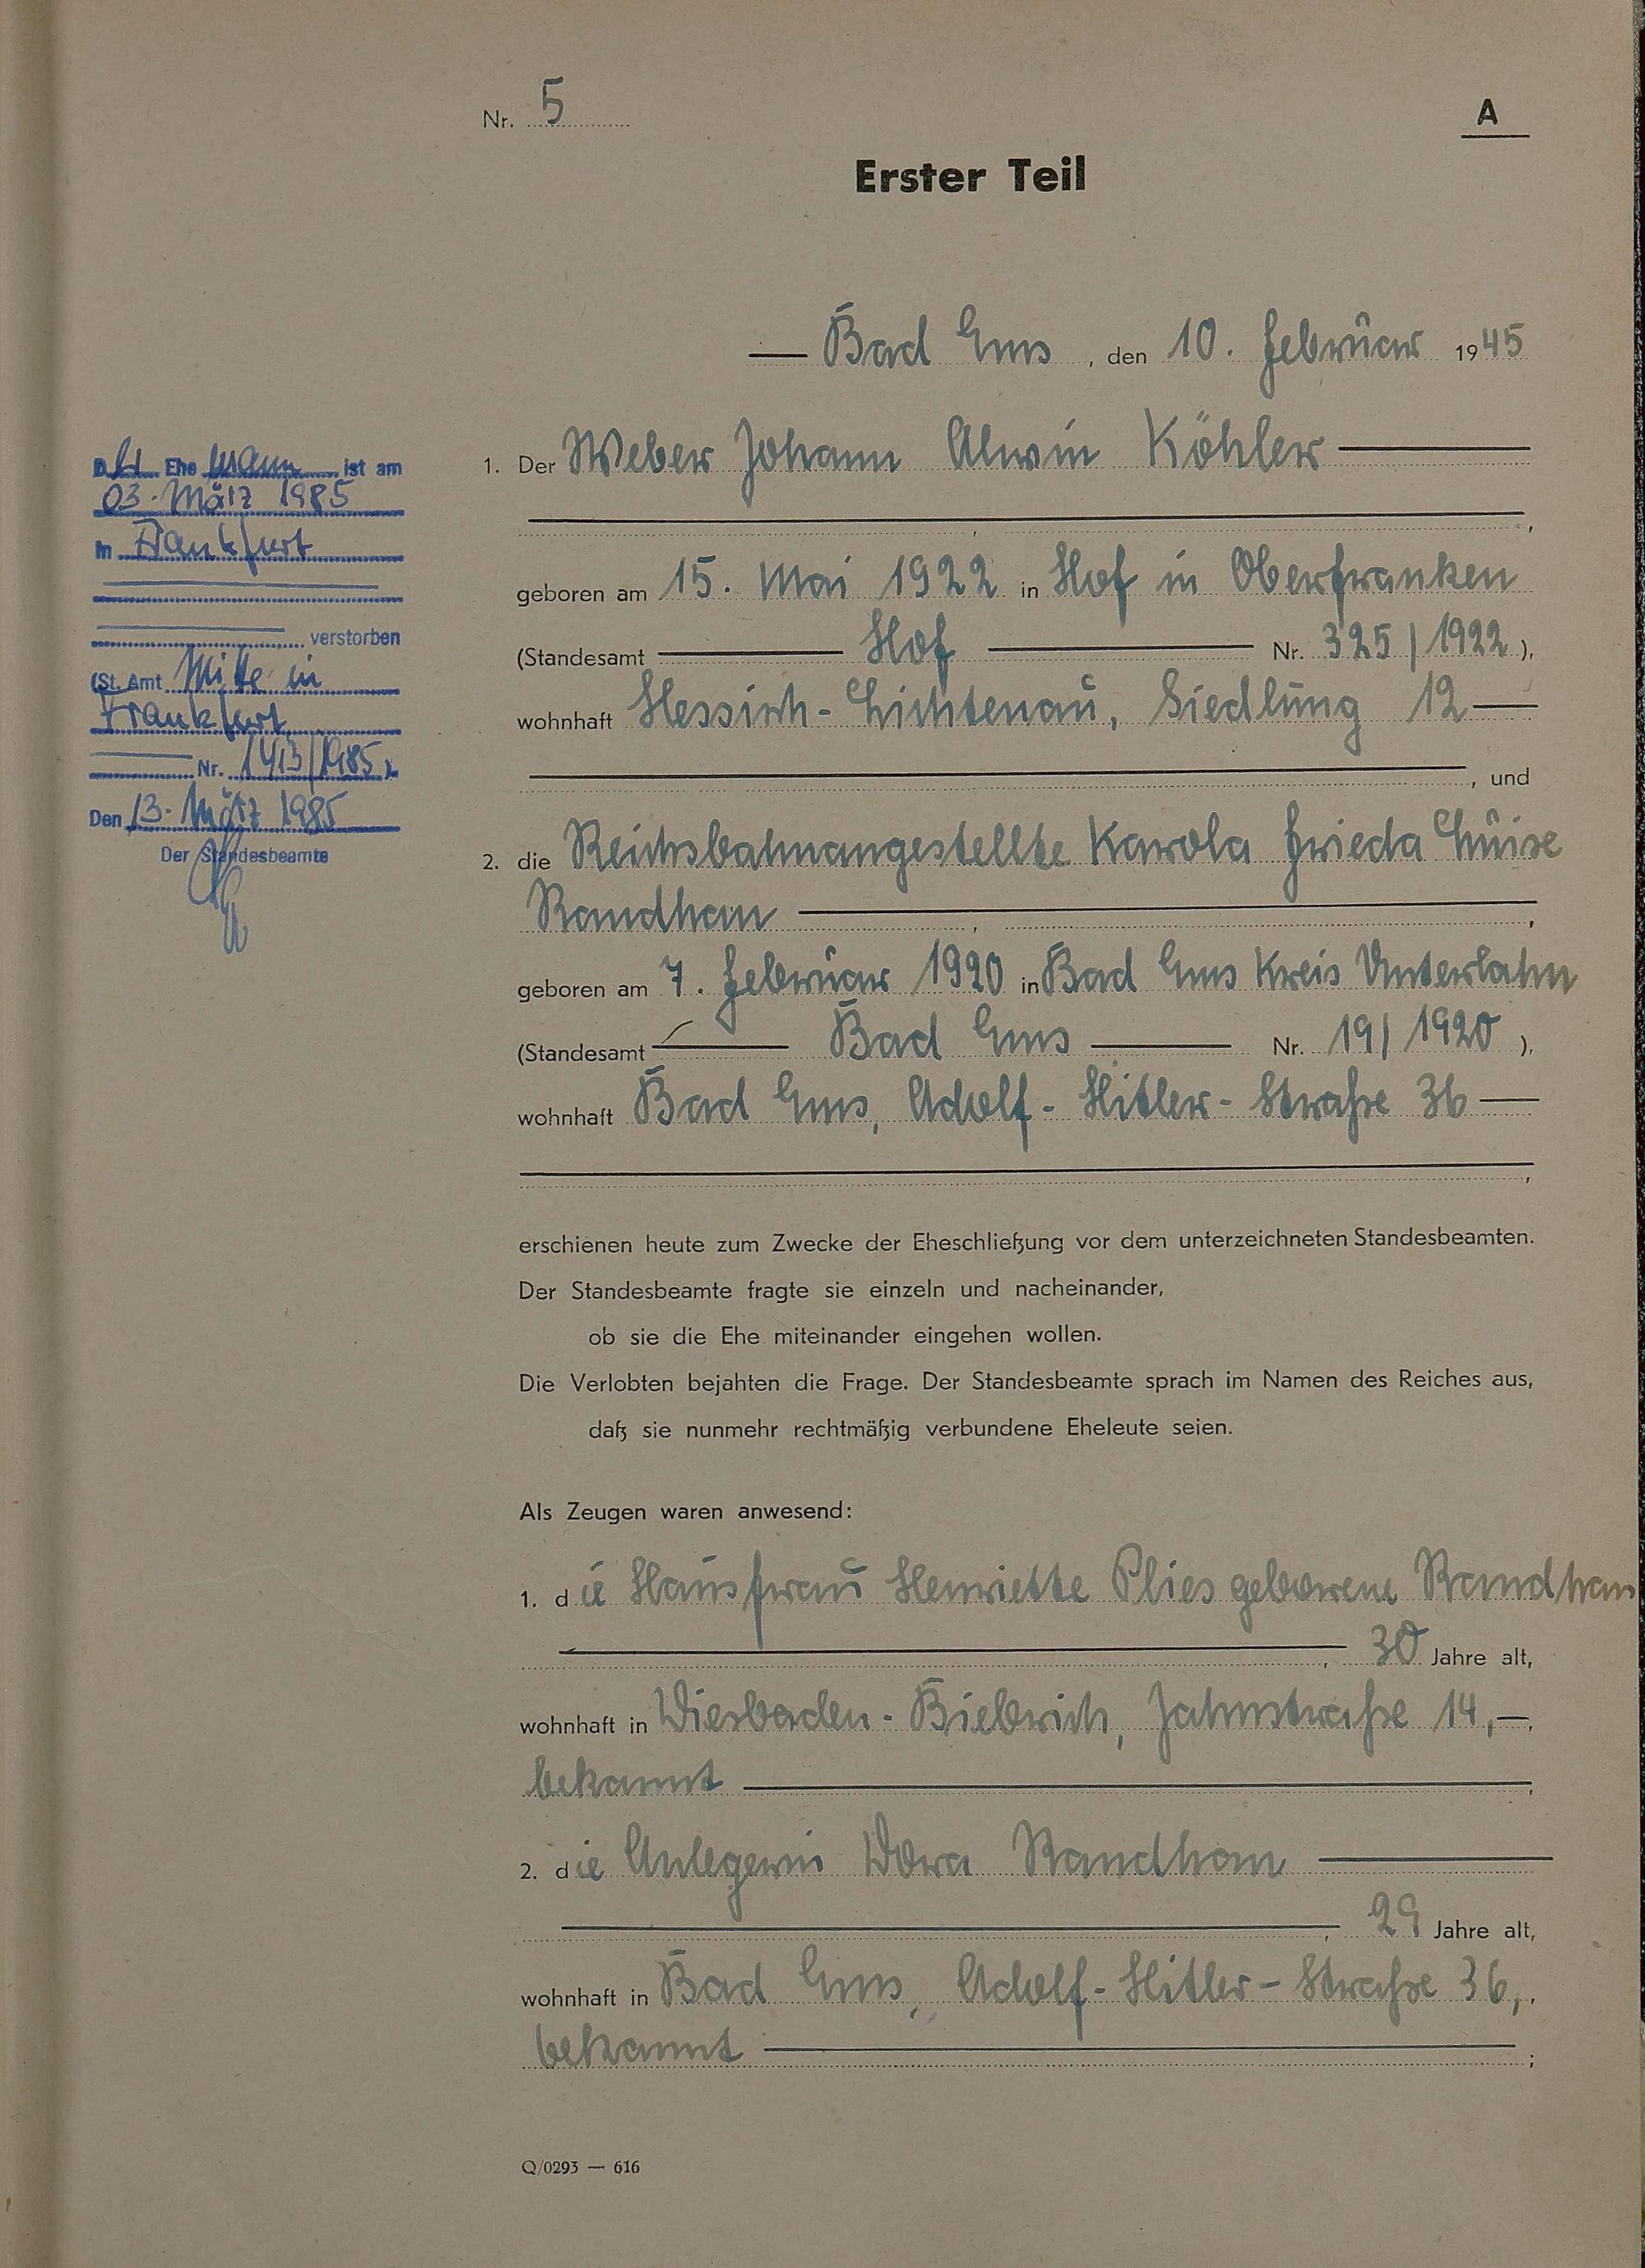 Nr. 5
A
Erster Teil
Bad Ems, den 10. Februar 1945
1. Der Weber Johann Alwin Köhler
,
geboren am 15. Mai 1922 in Hof in Oberfranken
(Standesamt Hof Nr. 325/1922),
wohnhaft Hessisch-Lichtenau, Siedlung 12
, und
2. die Reichsbahnangestellte Karola Frieda Luise
Randhan,
geboren am 7. Februar 1920 in Bad Ems Kreis Unterlahn
(Standesamt Bad Ems Nr. 19/1920),
wohnhaft Bad Ems, Adolf-Hitler-Straße 36
,
erschienen heute zum Zwecke der Eheschließung vor dem unterzeichneten Standesbeamten.
Der Standesbeamte fragte sie einzeln und nacheinander,
ob sie die Ehe miteinander eingehen wollen.
Die Verlobten bejahten die Frage. Der Standesbeamte sprach im Namen des Reiches aus,
daß sie nunmehr rechtmäßig verbundene Eheleute seien.
Als Zeugen waren anwesend:
1. die Hausfrau Henriette Plies geborene Randhan
, 30 Jahre alt,
wohnhaft in Wiesbaden-Biebrich, Jahnstraße 14,
bekannt;
2. die Anlegerin Dora Randhan
, 29 Jahre alt,
wohnhaft in Bad Ems, Adolf-Hitler-Straße 36,
bekannt;
Q/0293 — 616
Der Ehemann ist am
03. März 1985
in Frankfurt
verstorben
(St. Amt Mitte in
Frankfurt
Nr. 1413/1985)
Den 13. März 1985
Der Standesbeamte